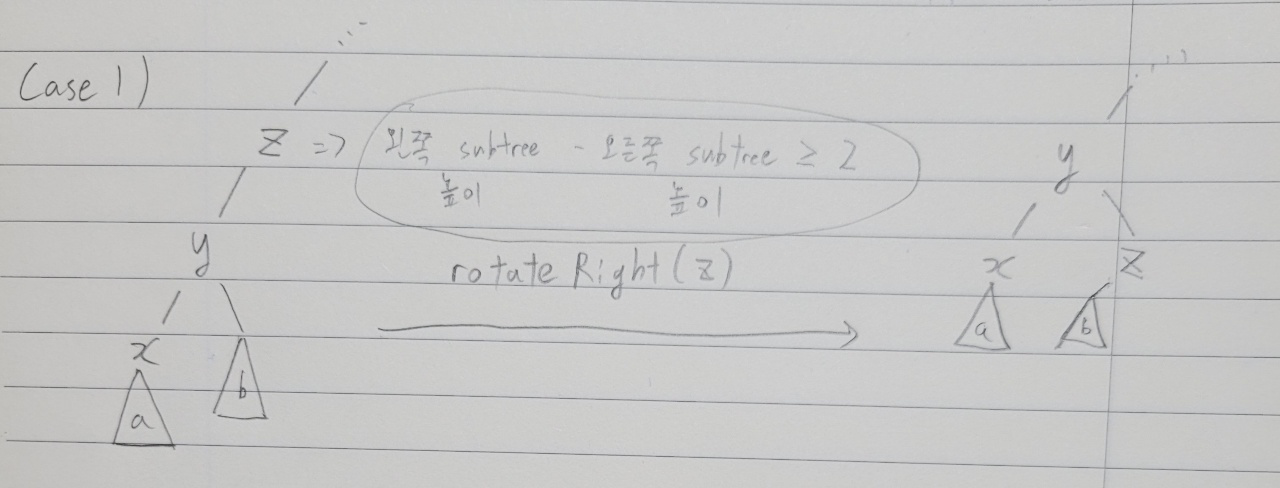 Case 1)
z => 왼쪽 subtree - 오른쪽 subtree ≥ 2
높이 높이
y
rotate Right (z)
x
a
b
y
x z
a b